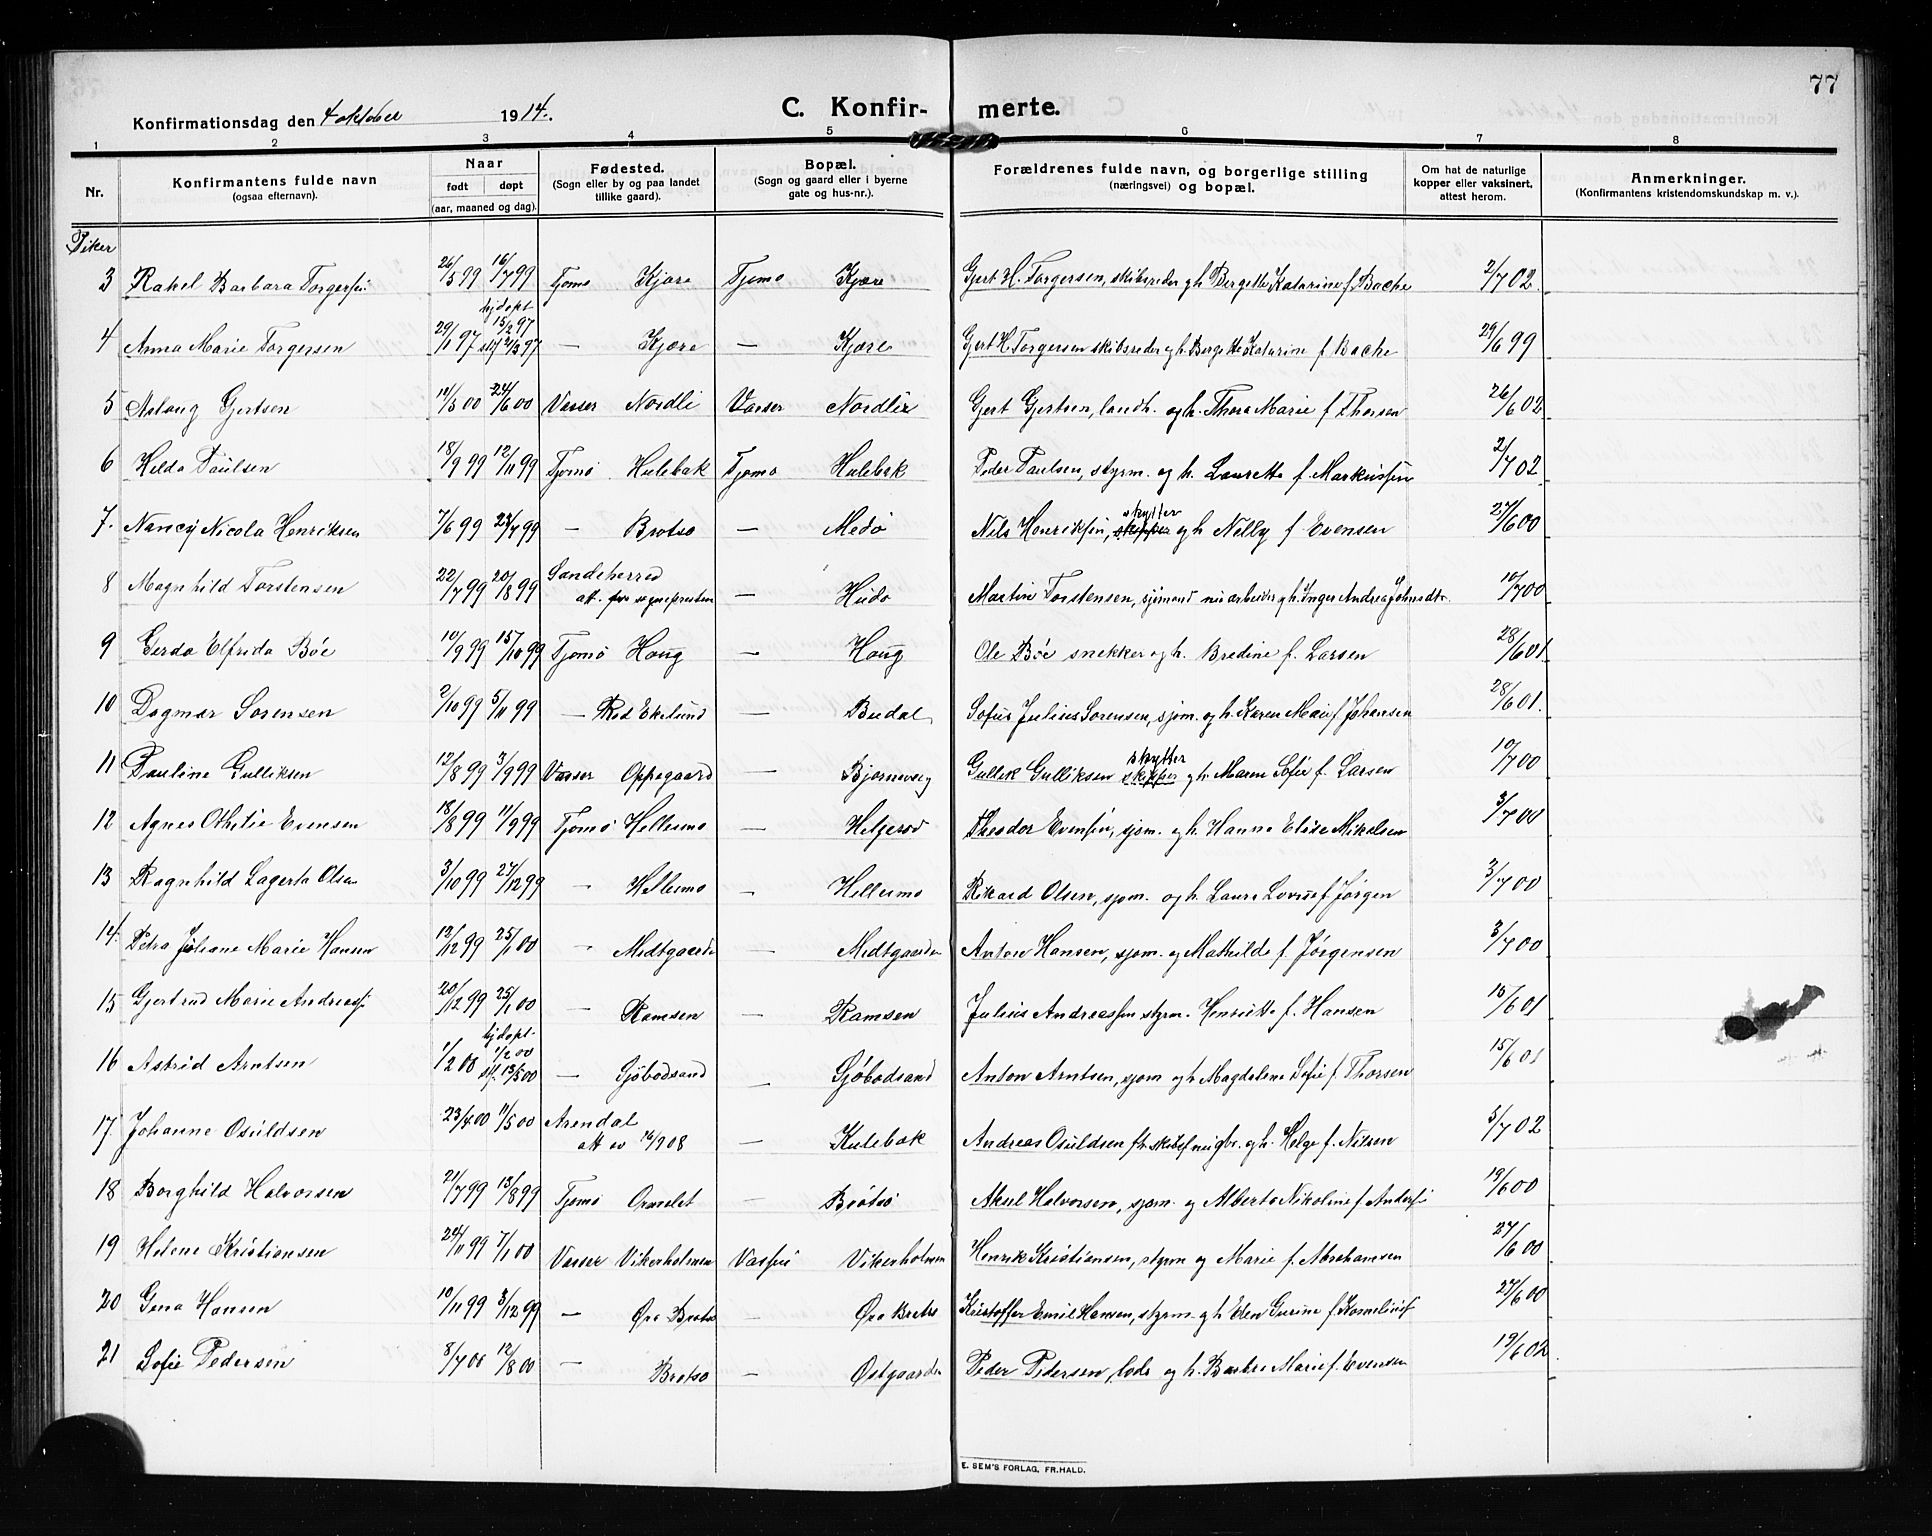 77
Konfirmationsdag den 4 oktober 1914.
C. Konfir- merte.
1 2 3 4 5 6 7 8
Nr.
Konfirmantens fulde navn
(ogsaa efternavn).
Naar
født døpt
(aar, maaned og dag).
Fødested.
(Sogn eller by og paa landet
tillike gaard).
Bopæl.
(Sogn og gaard eller i byerne
gate og hus-nr.).
Forældrenes fulde navn, og borgerlige stilling
(næringsvei) og bopæl.
Om hat de naturlige
kopper eller vaksinert,
attest herom.
Anmerkninger.
(Konfirmantens kristendomskundskap m. v.).
Piker
3 Rakel Barbara Torgersen 26/5 99 16/7 99 Tjømø Kjære Tjømø Kjære Gert H. Torgersen, skibsreder og h. Bergette Katarine f. Bache 2/7 02.
4 Anna Marie Torgersen 29/1 97 hjdøpt 15/2 97 stf 21/3 97 — Kjære — Kjære Gert H Torgersen skibsreder og h. Bergette Katarine f. Bache 29/6 99
5 Aslaug Gjertsen 11/5 00 24/6 00 Vasser Nordli Vasser Nordlie Gert Gjertsen, landh. og h. Thora Marie f Thorsen 26/6 02
6 Hilda Paulsen 18/9 99 12/11 99 Tjømø Hulebak Tjømø Hulebak Peder Paulsen, styrm. og h. Laurette f. Markussen 2/7 02
7. Nancy Nicola Henriksen 7/6 99 23/7 99 — Brøtsø — Medø Nils Henriksen, skipper skytter og h Nelly f Evensen 27/6 00
8 Magnhild Torstensen 22/7 99 20/8 99 Sandeherred att. fra sognepresten — Hudø Martin Torstensen, sjømand nu arbeider og h. Inger Andrea Johnsdtr. 10/7 00
9 Gerda Elfrida Bøe 10/9 99 15/10 99 Tjømø Haug — Haug Ole Bøe snekker og h. Bredine f. Larsen 28/6 01
10 Dagmar Sørensen 2/10 99 5/11 99 — Rød Ekelund — Budal Sofus Julius Sørensen, sjøm. og h. Karen Marie f Johansen 28/6 01.
11 Pauline Gulliksen 12/8 99 3/9 99 Vasser Oppegaard — Bjørneveg Gullik Gulliksen skipper skytter og h. Maren Sofie f. Larsen 10/7 00
12 Agnes Othilie Evensen 18/8 99 11/9 99 Tjømø Hellesmo — Helgerød Theodor Evensen, sjøm. og h. Hanna Elise Mikalsen 3/7 00
13 Ragnhild Lagerta Olsen 3/10 99 27/12 99 — Hellesmo — Hellesmo Rikard Olsen, sjøm. og h. Laura Lovise f Jørgen 3/7 00
14. Petra Juliane Marie Hansen 12/12 99 25/1 00 — Midtgaarden — Midtgaarden Anton Hansen, sjøm. og Mathilde f. Jørgensen 3/7 00
15 Gjertrud Marie Andreass. 20/12 99 25/1 00 — Ramsen — Ramsen Julius Andreassen styrm. Henriette f. Hansen 15/6 01
16 Astrid Arntsen 1/2 00 hjdøpt. 1/2 00 stf. 13/5 00 — Gjøbodsand — Gjøbodsand Anton Arntsen, sjøm og h Magdalene Sofie f. Thorsen 15/6 01
17. Johanne Osuldsen 23/4 00 11/5 00 Arendal att av 16/9 08 — Hulebak Andreas Osuldsen og h. Helga f. Nilsen 5/7 02
18 Borghild Halvorsen 21/7 99 13/8 99 Tjømø — Brøtsø Aksel Halvorsen, sjøm. og Alberta Nikoline f Anders. 19/6 00
19 Helene Kristiansen 24/11 99 7/1 00 Vasser Vikerholmen Vasser Vikerholmen Henrik Kristiansen, styrm og Marie f. Abrahamsen 27/6 00
20 Gena Hansen 10/11 99 3/12 99 — Øra Brøtsø Øra Brøtsø Kristoffer Emil Hansen, styrm. og h Elen Gurine f Kornelius. 27/6 00
21 Sofie Pedersen 8/7 00 12/8 00 — Brøtsø — Østgaarden Peder Pedersen, lods og h. Barbra Marie f. Evensen 19/6 02.
E. SEM'S FORLAG, FR.HALD.